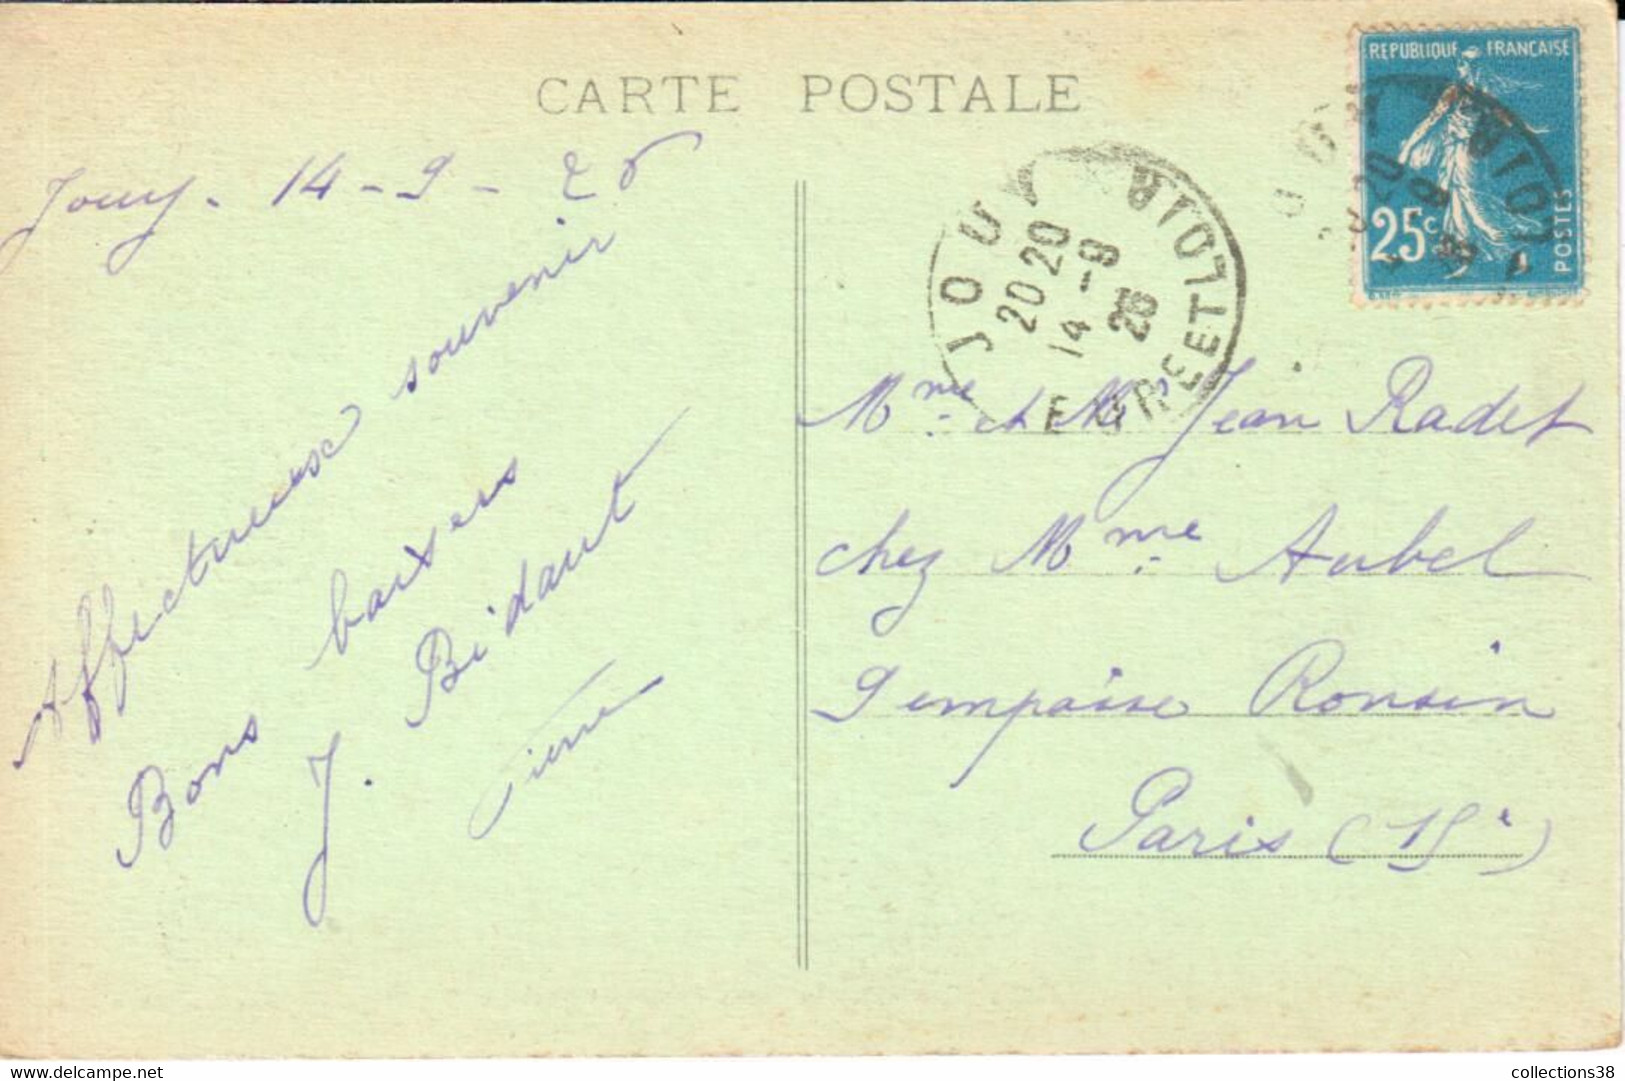 CARTE POSTALE
REPUBLIQUE FRANCAISE
25c
POSTES
JOUY
EURE ET LOIR
20 20
14 - 9
26
Jouy - 14 - 9 - 26
Affectueux souvenir
Bons baisers
J. Bidaut
Pierre
Mme et Mr Jean Radet
chez Mme Aubel
9 Impasse Ronsin
Paris (15e)
collections38